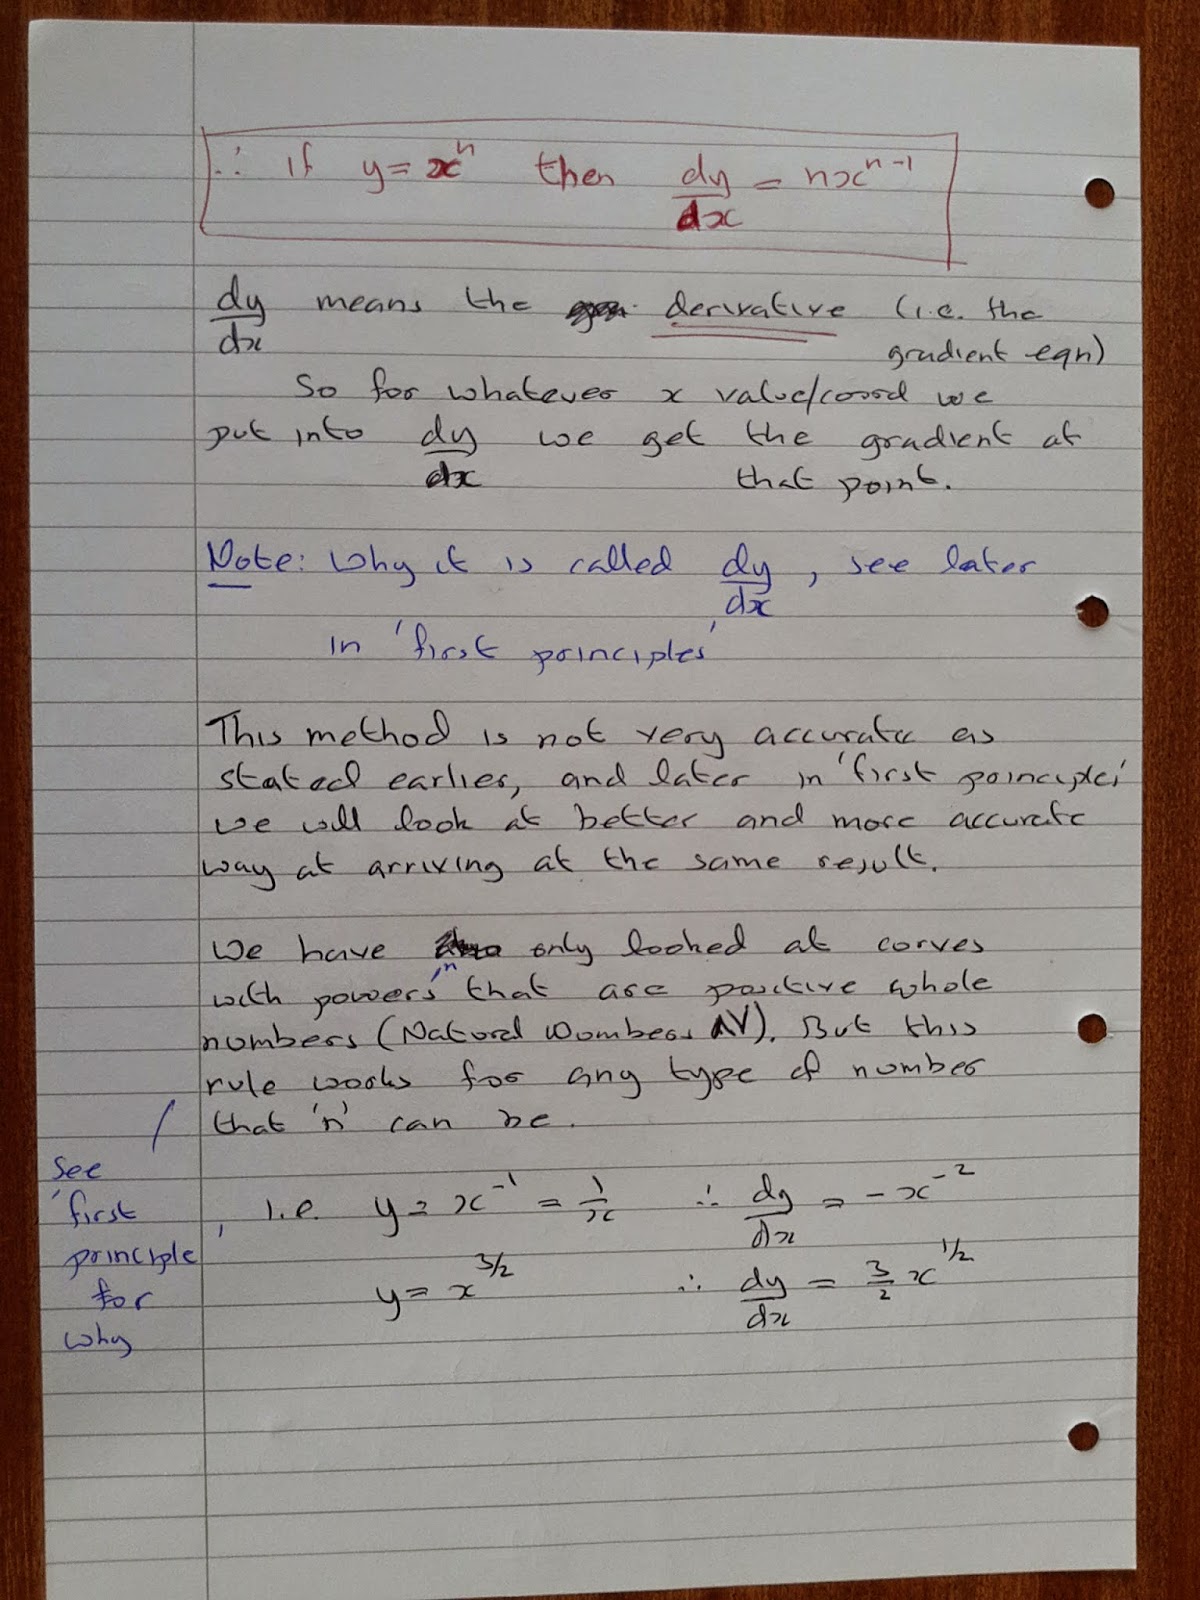 ∴ if y = xⁿ then dy/dx = nxⁿ⁻¹
dy/dx means the derivative (i.e. the
gradient eqn)
So for whatever x value/coord we
put into dy/dx we get the gradient at
that point.
Note: Why it is called dy/dx, see later
in 'first principles'
This method is not very accurate as
stated earlier, and later in 'first principles'
we will look at better and more accurate
way at arriving at the same result.
We have only looked at corves
with powers 'n' that are positive whole
numbers (Natural Numbers ℕ). But this
rule works for any type of number
that 'n' can be.
See
'first
principle'
for
why
i.e. y = x⁻¹ = 1/x ∴ dy/dx = -x⁻²
y = x^3/2 ∴ dy/dx = 3/2 x^1/2